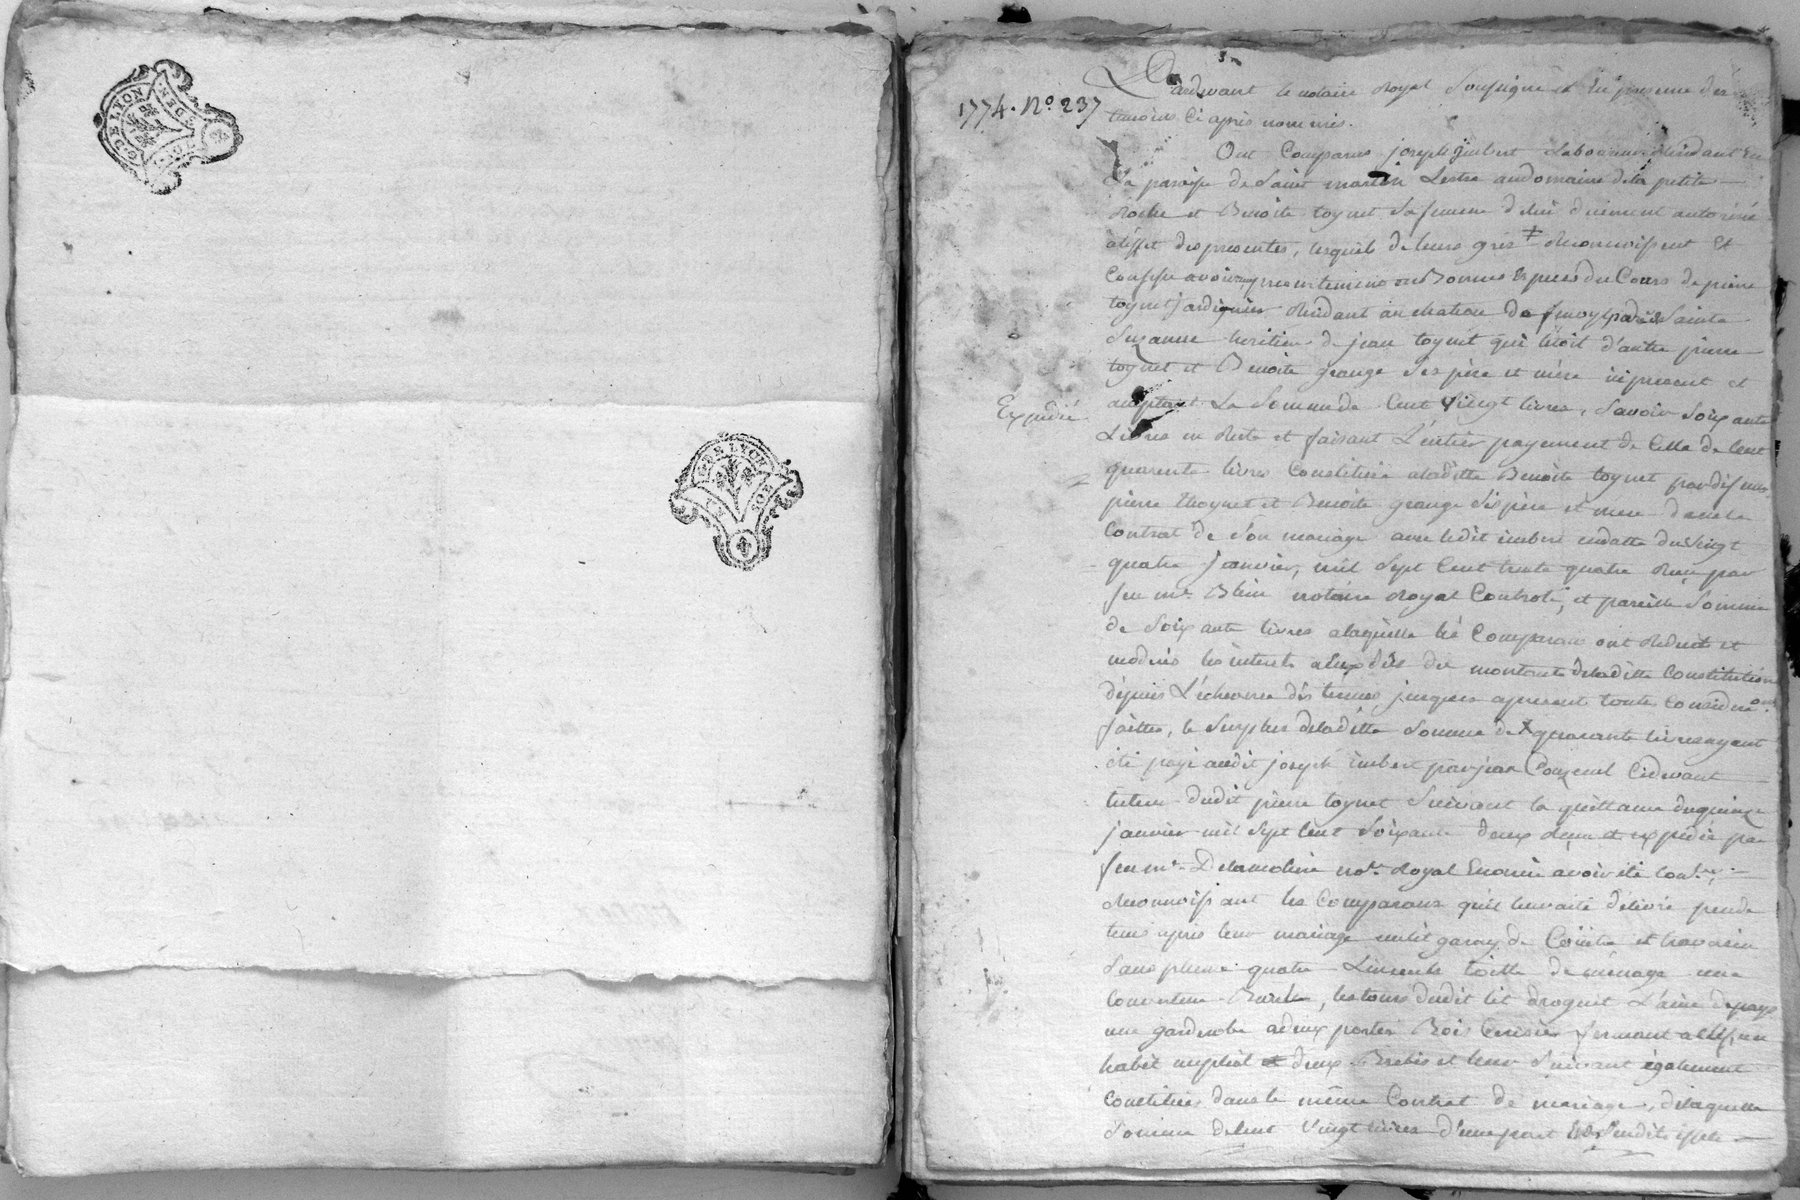 G. DE LYON
G. DE LYON
1774. No. 237
Pardevant le notaire Royal Soussigné et En presence des
temoins Ci apres nommés.
Ont Comparus joseph imbert Laboureur Residant En
La paroisse de Saint martin Lestra au domaine dela petite
Roche et Benoite toynet Sa femme de lui duement autorisée
a leffet des presentes, lesquels de leurs grés Reconnoissent Et
Confessé avoir reçu presentement en Bonnes Especes du Cours de pierre
toynet jardignier Residant au chateau de Sainte
Suzanne heritier de jean toynet qui létoit d'autre pierre
toynet et Benoite grange Ses père et mère ici present et
acceptant La Somme de Cent Vingt livres, Savoir Soixante
Expedié
Livres en Reste et faisant L'entier payement de Celle de Cent
quarente livres Constituée a laditte Benoite toynet par defunts
pierre thoynet et Benoite grange Ses père et mere dans le
Contrat de Son mariage avec ledit imbert en datte du Vingt
quatre janvier, mil Sept Cent trente quatre Reçu par
feu me. Blein notaire Royal Controlé, et pareille Somme
de Soixante livres a laquelle les Comparans ont Reduit et
moderé les interets du montant de laditte Constitution
depuis L'échéance des termes jusques apresent toutes
faittes, le Surplus de laditte Somme de quarante livres ayant
été payé audit joseph imbert par jean Cidevant
tuteur dudit pierre toynet Suivant la quittance du quinze
janvier mil Sept Cent Soixante deux Reçue et expediée par
feu me. Delamoliere nore. Royal Enoncée avoir été Conlée.
Reconnoissant les Comparans qu'il leur a été délivré peu de
tems après leur mariage un lit garny de Coëtte et traversin
Sans plume quatre Linceuls toille de ménage une
Couverture les tours dudit lit droguet L'aine de pays
une garderobe a deux portes Bois Cerisier fermant a clef, un
habit nuptial et deux Brebis et leur Suivant également
Constitués dans le même Contrat de mariage, de laquelle
Somme de Cent Vingt livres d'une part